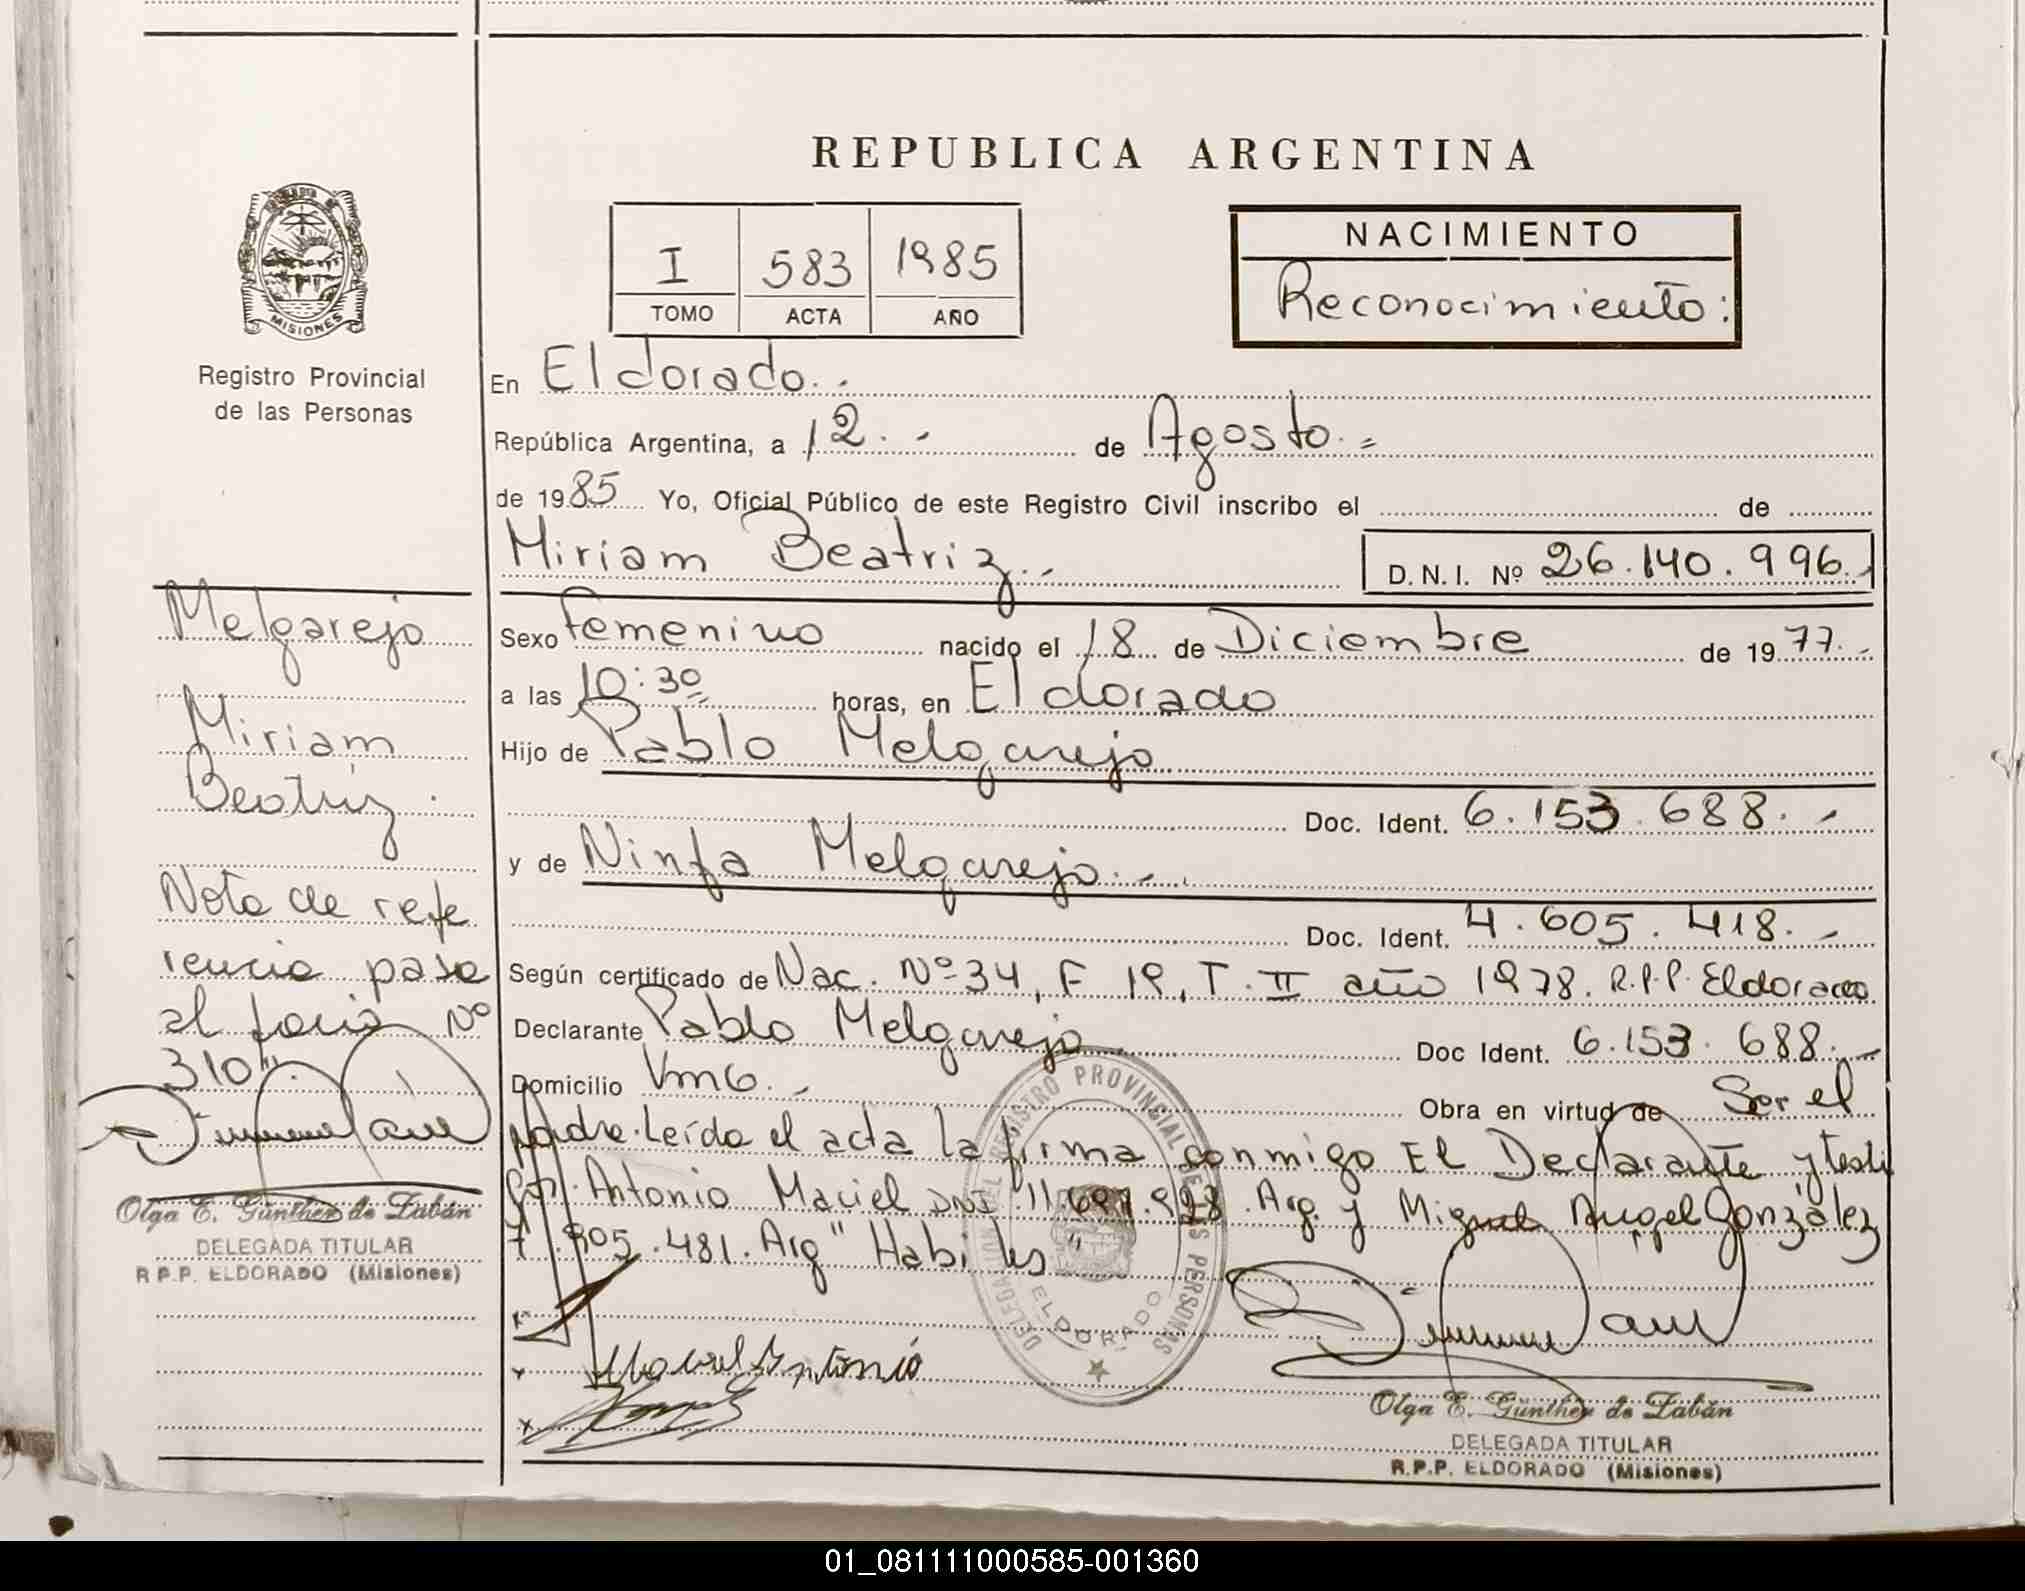 REPUBLICA ARGENTINA
MISIONES
Registro Provincial
de las Personas
I 583 1985
TOMO ACTA AÑO
NACIMIENTO
Reconocimiento:
En El dorado.-
República Argentina, a 12.- de Agosto.=
de 1985 Yo, Oficial Público de este Registro Civil inscribo el de
Miriam Beatriz.- D.N.I. Nº 26.140.996.-
Sexo Femenino nacido el 18 de Diciembre de 1977.-
a las 10:30 horas, en El dorado
Hijo de Pablo Melgarejo
Doc. Ident. 6.153.688.-
y de Ninfa Melgarejo.-
Doc. Ident. 4.605.418.-
Según certificado de Nac. Nº 34, F 19, T. II año 1978. R.P.P. Eldorado
Declarante Pablo Melgarejo Doc Ident. 6.153.688.-
Domicilio Vmo.- Obra en virtud de Ser el
padre. Leída el acta la firma conmigo El Declarante y testi
gos. Antonio Maciel DNI 11. Arg. y Miguel Angel González
7.805.481. Arg "Habiles"
Melgarejo
Miriam
Beatriz.
Nota de refe
rencia pasa
al folio Nº
310".
Olga E. Günther de Zabán
DELEGADA TITULAR
R.P.P. ELDORADO (Misiones)
DELEGACION DEL REGISTRO PROVINCIAL DE LAS PERSONAS
ELDORADO
Maciel Antonio
Olga E. Günther de Zabán
DELEGADA TITULAR
R.P.P. ELDORADO (Misiones)
01_081111000585-001360